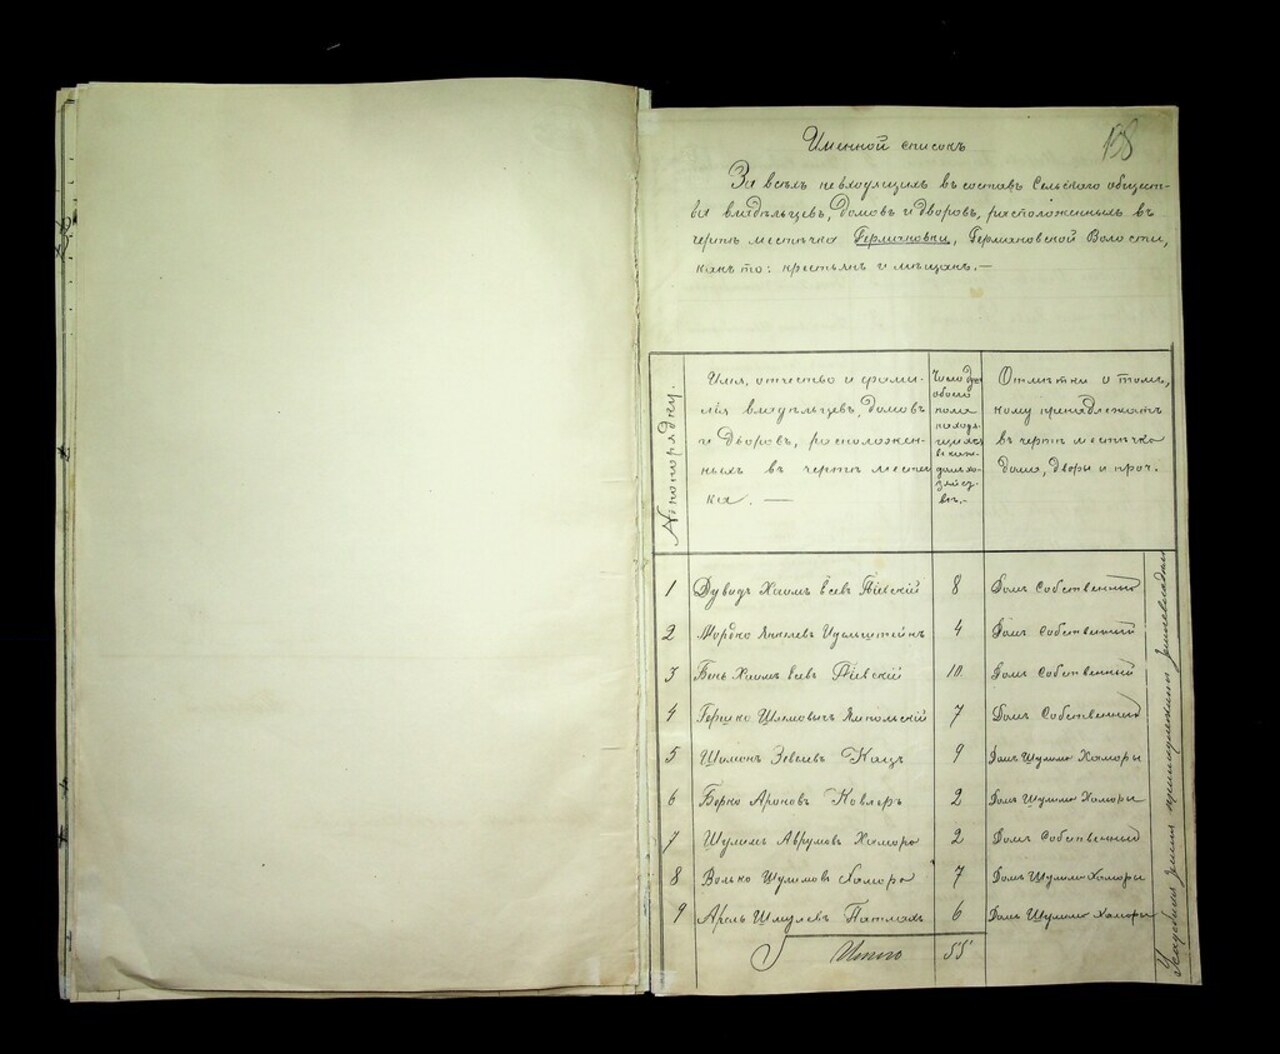 138
Именной списокъ
За всѣхъ невходящихъ въ составъ Сельскаго общест-
ва владѣльцевъ, Домовъ и Дворовъ, расположенныхъ въ
чертѣ мѣстечка Германовки, Германовской Волости,
какъ то: крестьянъ и мѣщанъ.—
№ по порядку.
Имя, отчество и фами-
лія владѣльцевъ, Домовъ
и Дворовъ, расположен-
ныхъ въ чертѣ местеч
ка. —
Число Душ
обоего
пола
находя-
щихся
въ каж-
домъ хо-
зяйст-
вѣ.-
Отмѣтки о томъ,
кому принадлежатъ
въ чертѣ мѣстечка
дома, дворы и проч.
1 Дувидъ Хаимъ Евсеевъ Кіевскій 8 Домъ Собственный
2 Мордко Янкелевъ Идельштейнъ 4 Домъ Собственный
3 Бень Хаимъ Кіевскій 10 Домъ Собственный
4 Гершко Шлемовичъ Ямпольскій 7 Домъ Собственный
5 Шимонъ Кацъ 9 Домъ Шулима Хаморы
6 Берко Ароновъ Ковлеръ 2 Домъ Шулима Хаморы
7 Шулимъ Аврумовъ Хамора 2 Домъ Собственный
8 Волько Шулимовъ Хамора 7 Домъ Шулима Хаморы
9 Аронъ Шмулевъ 6 Домъ Шулима Хаморы
Итого 55
Усадебная земля принадлежитъ